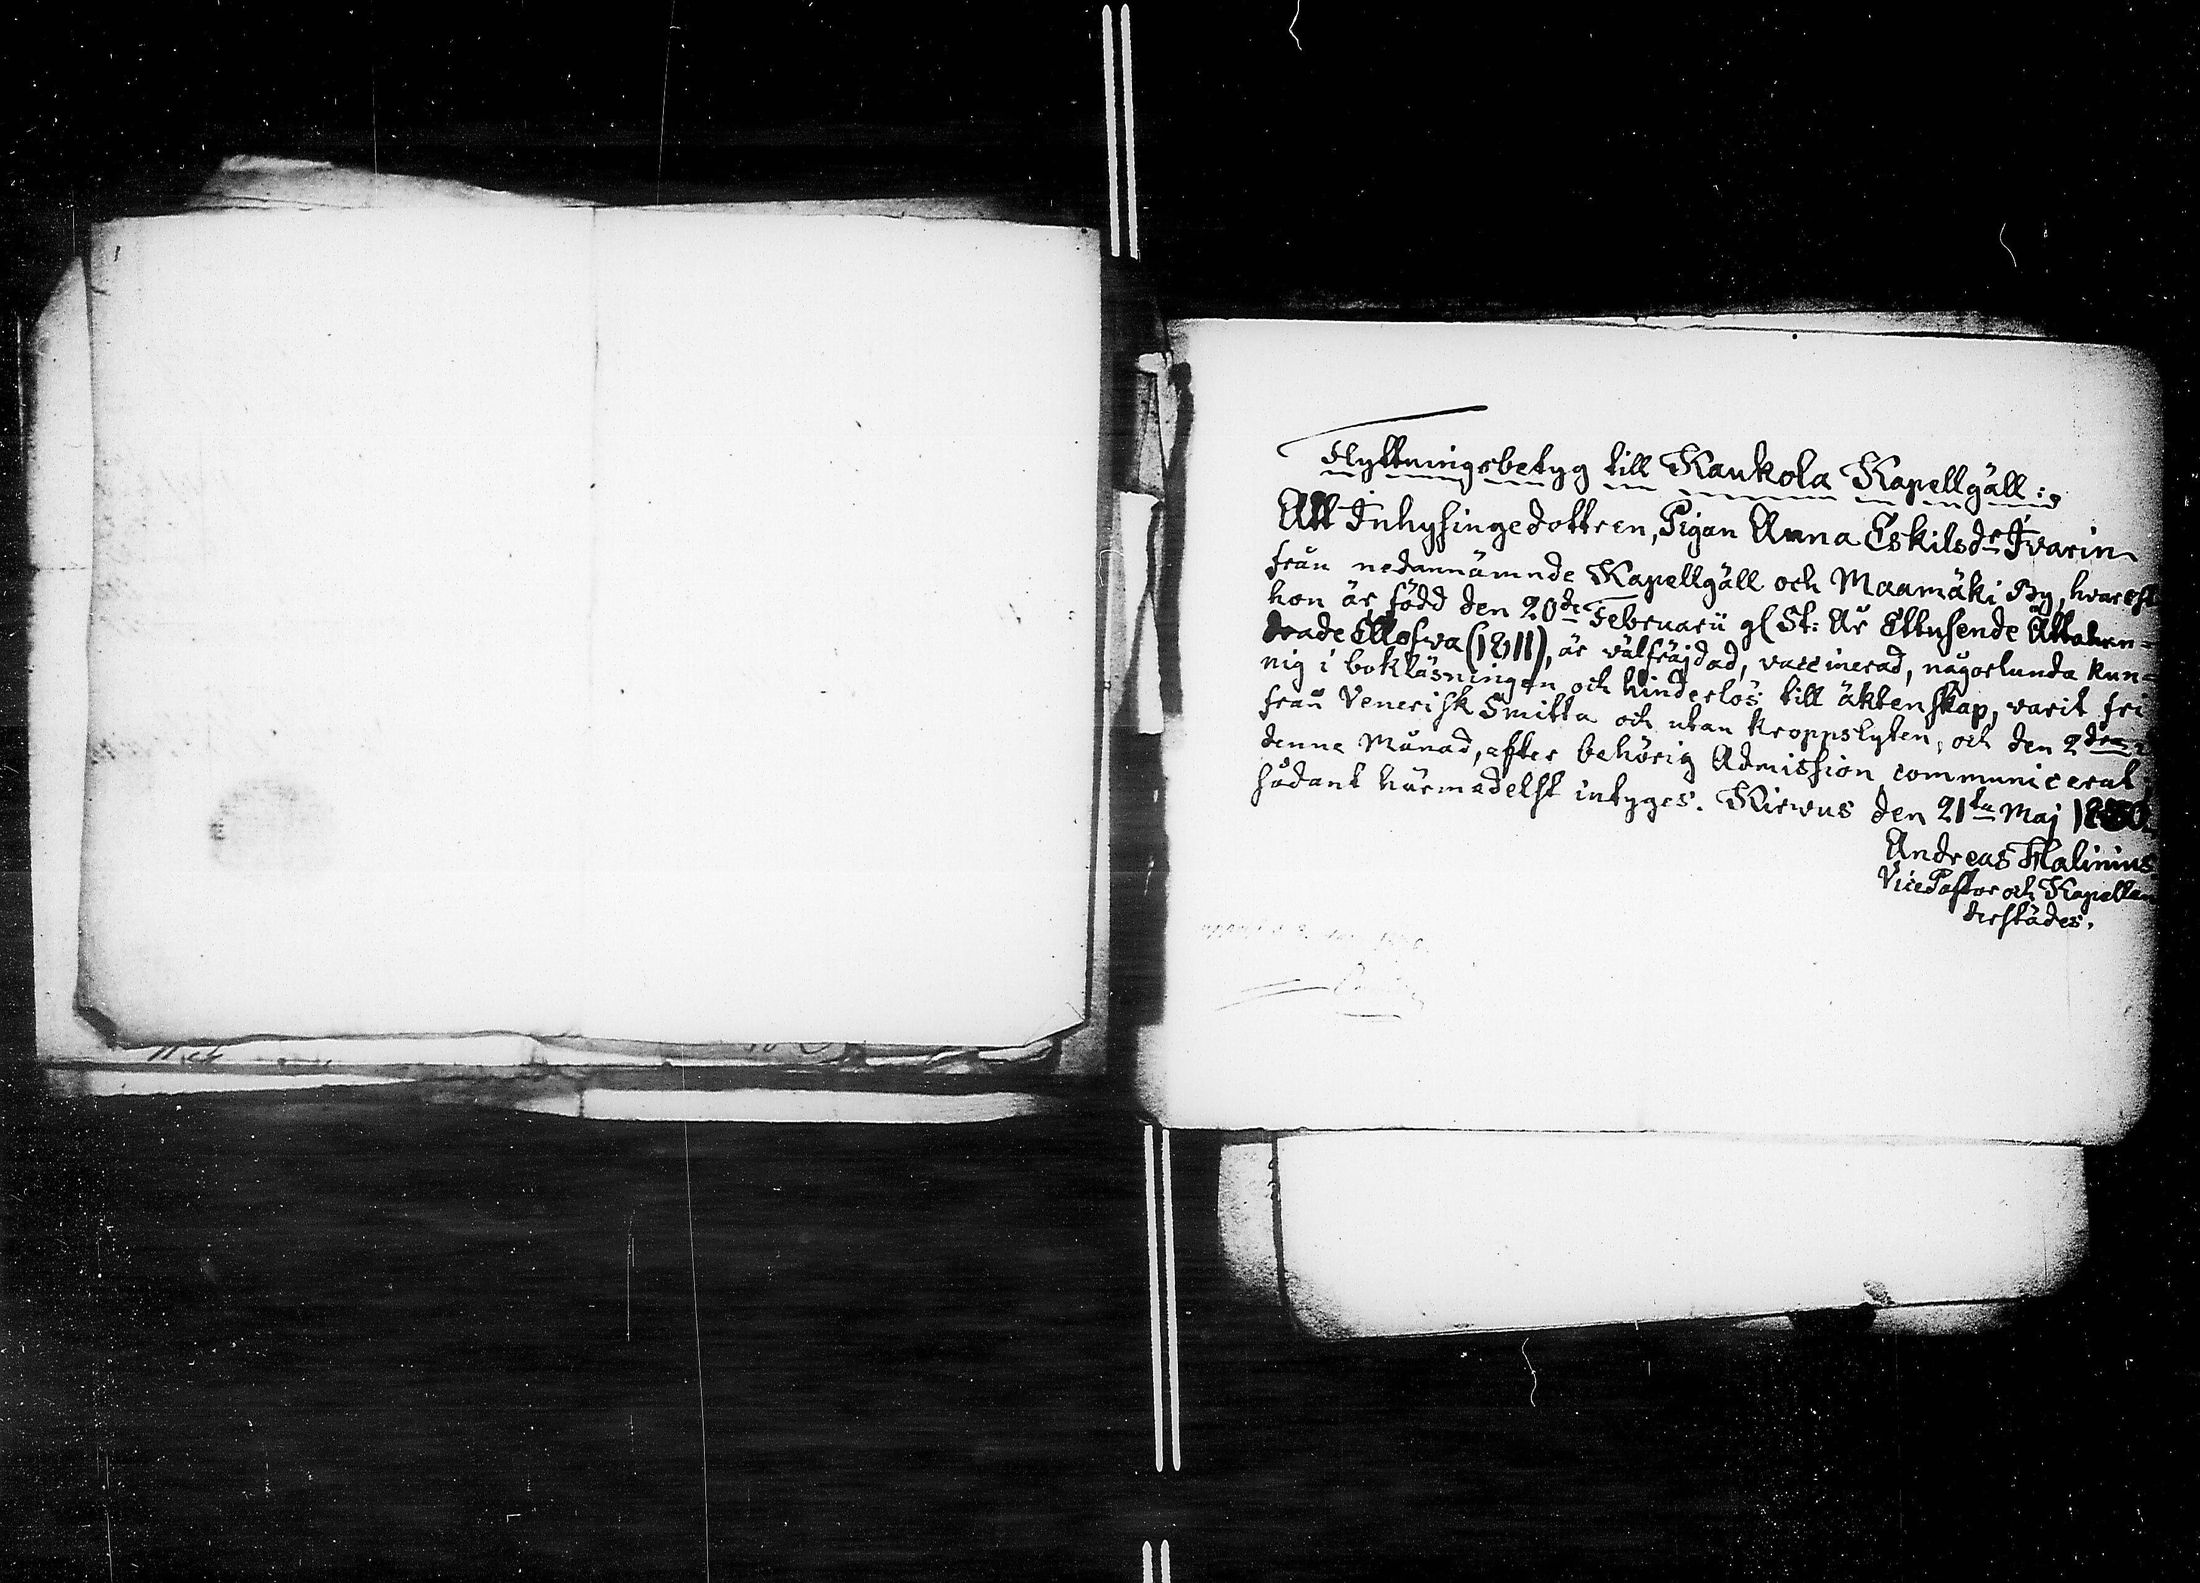 Flyttningsbetyg till Kaukola Kapellgäll:
Att Inhysingedottren, Pigan Anna Eskilsdr Ivarin
från nedannämnde Kapellgäll och Maamäki By, hvarest
hon är född den 20de Februarii gl St: År Ettusende Åttahun-
drade Ellofva (1811), är välfräjdad, vaccinerad, någorlunda kun-
nig i bokläsningen och hinderlös till äktenskap, varit fri
från Venerisk Smitta och utan kroppslyten, och den 2dra i
denne Månad, efter behörig Admission communicerat;
sådant härmedelst intyges. Kirvus den 21ta Maj
Andreas Halinius
Vice Pastor och Kapellan
derstädes.